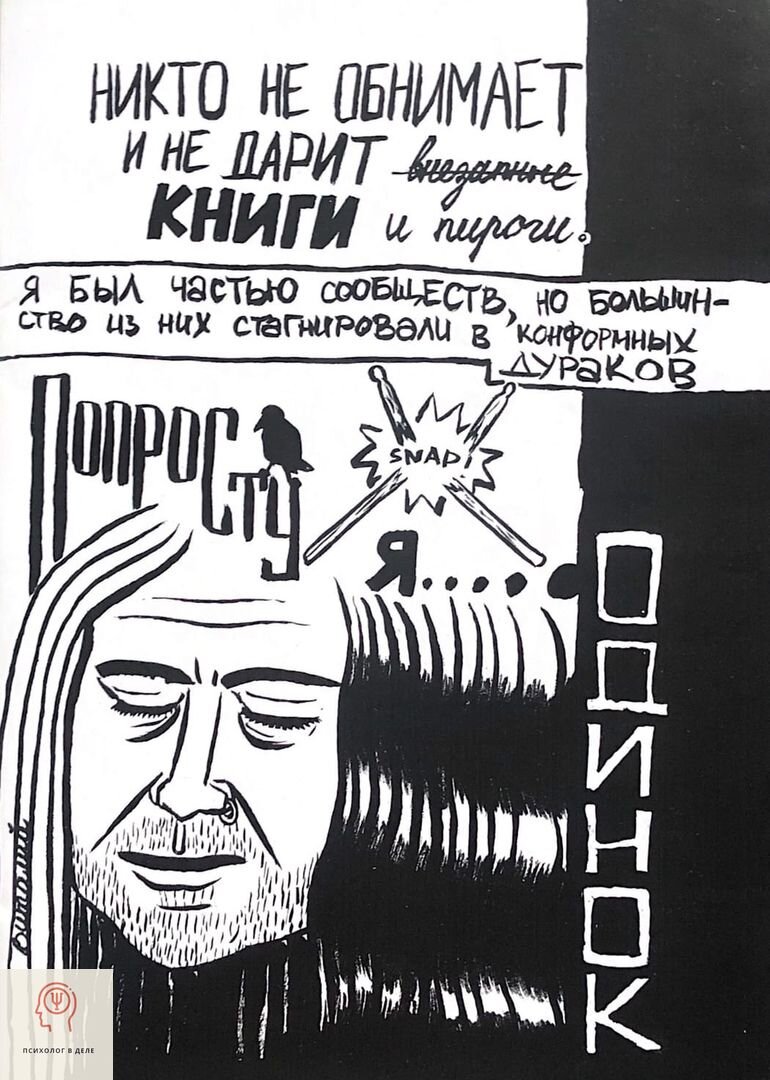 НИКТО НЕ ОБНИМАЕТ
И НЕ ДАРИТ внезапные
КНИГИ и пироги.
Я БЫЛ ЧАСТЬЮ СООБЩЕСТВ, НО БОЛЬШИН-
СТВО ИЗ НИХ СТАГНИРОВАЛИ В КОНФОРМНЫХ
ДУРАКОВ
ПОПРОСТУ
SNAP!
Я.....
ОДИНОК
Виталий
ПСИХОЛОГ В ДЕЛЕ